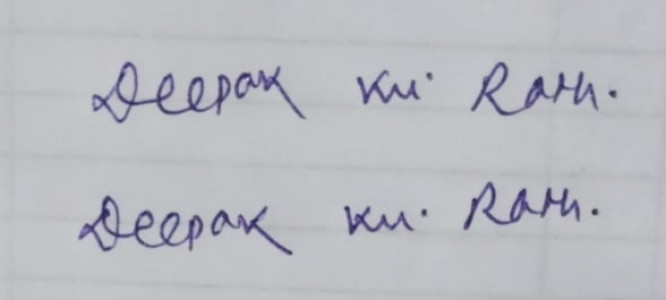 Deepak Ku. Ram.
Deepak Ku. Ram.